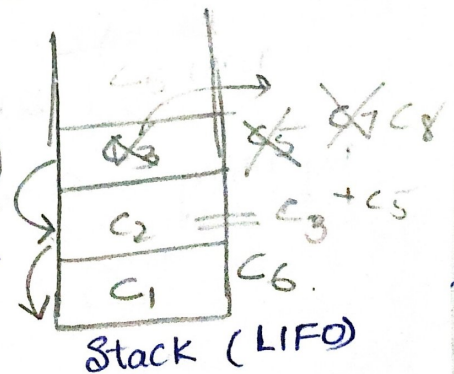 C3 C5 C7 C8
C2 = C3 + C5
C1 C6.
Stack (LIFO)